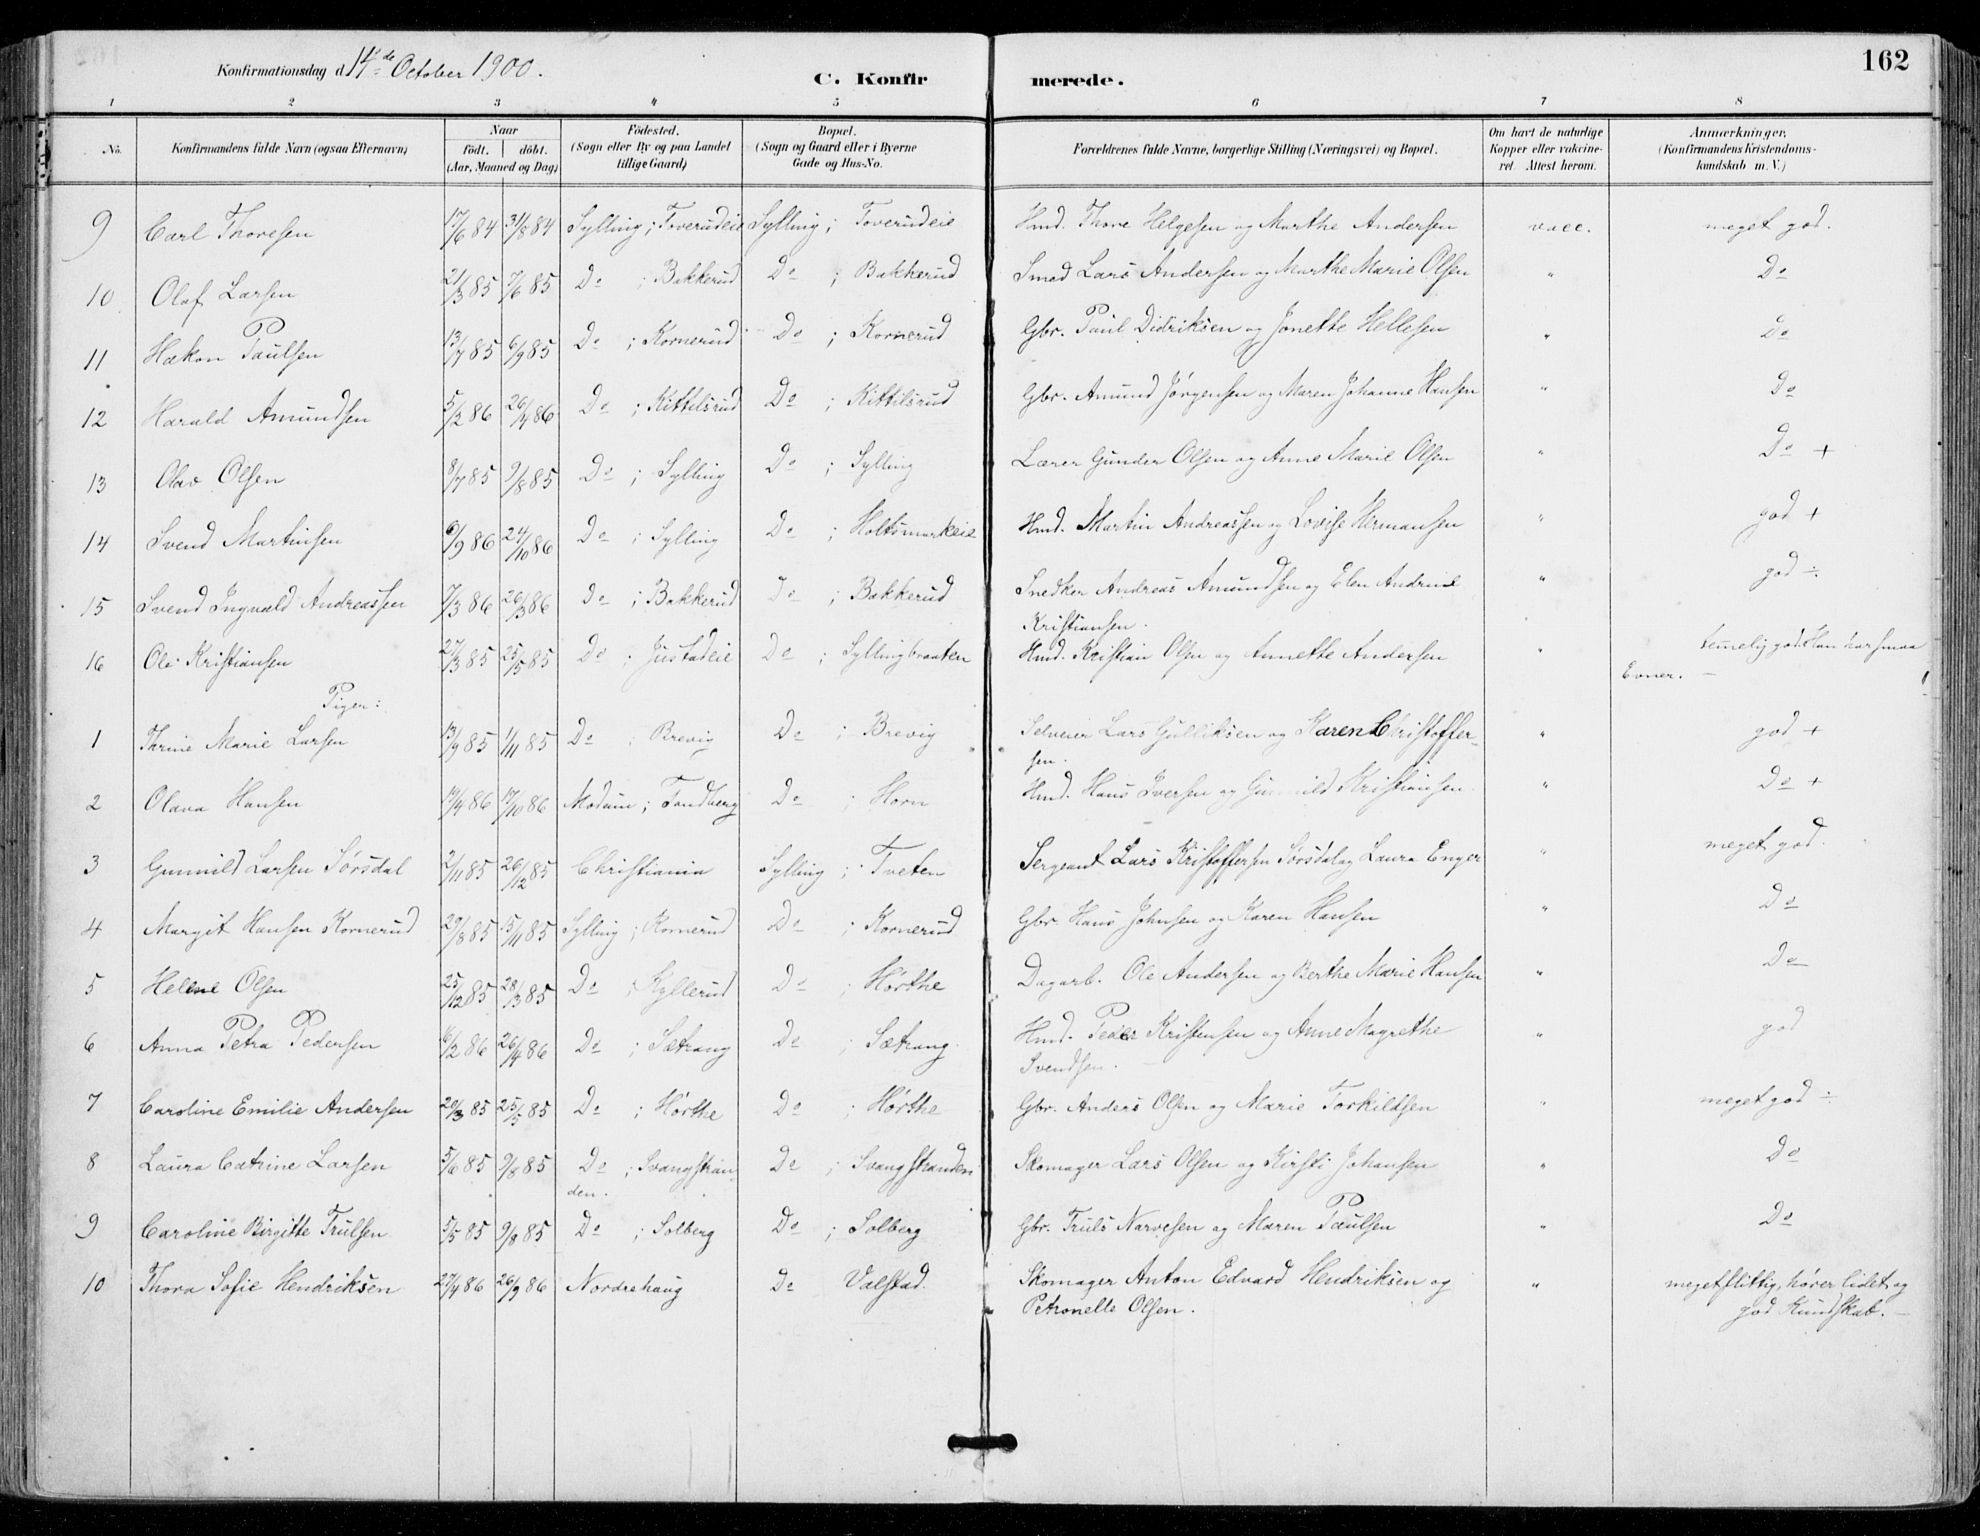 162
Konfirmationsdag d. 14de October 1900.
C. Konfirmerede.
1 2 3 4 5 6 7 8
No.
Konfirmandens fulde Navn (ogsaa Efternavn)
Naar
födt. döbt.
(Aar, Maaned og Dag)
Födested.
(Sogn eller By og paa Landet
tillige Gaard)
Bopæl.
(Sogn og Gaard eller i Byerne
Gade og Hus-No.
Forældrenes fulde Navne, borgerlige Stilling (Næringsvei) og Bopæl.
Om havt de naturlige
Kopper eller vakcine-
ret Attest herom.
Anmærkninger.
(Konfirmandens Kristendoms-
kundskab m. V.)
9 Carl Thoresen 17/6 84 31/8 84 Sylling; Toverudeie Sylling; Toverudeie Hmd. Thore Helgesen og Marthe Andersen vacc. meget god.
10 Olaf Larsen 21/3 85 7/6 85 Do ; Bakkerud Do ; Bakkerud Smed Lars Andersen og Marthe Marie Olsen " Do
11 Hakon Paulsen 13/7 85 6/9 85 Do ; Kornerud Do ; Kornerud Gbr. Paul Didriksen og Jonette Hellesen " Do
12 Harald Amundsen 5/2 86 26/4 86 Do ; Kittilsrud Do ; Kittilsrud Gbr. Amund Jörgensen og Maren Johanne Hansen " Do
13 Olav Olsen 8/7 85 9/8 85 Do ; Sylling Do ; Sylling Lærer Gunder Olsen og Anne Marie Olsen " Do +
14 Svend Martinsen 6/9 86 24/10 86 Do ; Sylling Do ; Holtsmarkeie Hmd. Martin Andreassen og Lovise Hermansen " god +
15 Svend Ingvald Andreassen 7/3 86 26/3 86 Do ; Bakkerud Do ; Bakkerud Snedker Andreas Amundsen og Elen Andrine " god ÷
Kristiansen.
16 Ole Kristiansen 27/3 85 25/5 85 Do ; Justadeie Do ; Syllingbraaten Hmd. Kristian Olsen og Annette Andersen " temelig god. Han har smaa
Evner. —
Piger:
1 Thrine Marie Larsen 13/9 85 1/11 85 Do ; Brevig Do ; Brevig Selveier Lars Gulliksen og Karen Christoffer- " god +
sen.
2 Olava Hansen 14/9 86 17/10 86 Modum; Tandberg Do ; Horn Hmd. Hans Iversen og Gunnild Kristiansen. " Do +
3 Gunnild Larsen Sørsdal 2/11 85 26/12 85 Christiania Sylling; Tveten Sergeant Lars Kristoffersen Sørsdal og Laura Enger " meget god.
4 Margit Hansen Kornerud 29/8 85 15/11 85 Sylling; Kornerud Do ; Kornerud Gbr. Hans Johnsen og Karen Hansen " Do
5 Helene Olsen 25/12 85 28/3 85 Do ; Kyllerud Do ; Hørthe Dagarb. Ole Andersen og Berthe Marie Hansen " Do
6 Anna Petra Pedersen 6/2 86 26/4 86 Do ; Sætrang Do ; Sætrang. Hmd. Peder Kristensen og Anne Magrethe " god
Svendsen.
7 Caroline Emilie Andersen 20/3 85 25/5 85 Do ; Hørthe Do ; Hørthe Gbr. Anders Olsen og Marie Torkildsen " meget god ÷
8 Laura Catrine Larsen 5/6 85 9/8 85 Do ; Svangstran- Do ; Svangstranden Skomager Lars Olsen og Kirsti Johansen " Do
den.
9 Caroline Birgitte Trulsen 5/5 85 9/8 85 Do ; Solberg Do ; Solberg Gbr. Truls Narvesen og Maren Paulsen " Do
10 Thora Sofie Hendriksen 27/4 86 26/9 86 Nordrehaug Do Valstad. Skomager Anton Edvard Hendriksen og " meget flittig, hører lidet og
Petronelle Olsen. god Kundskab. —